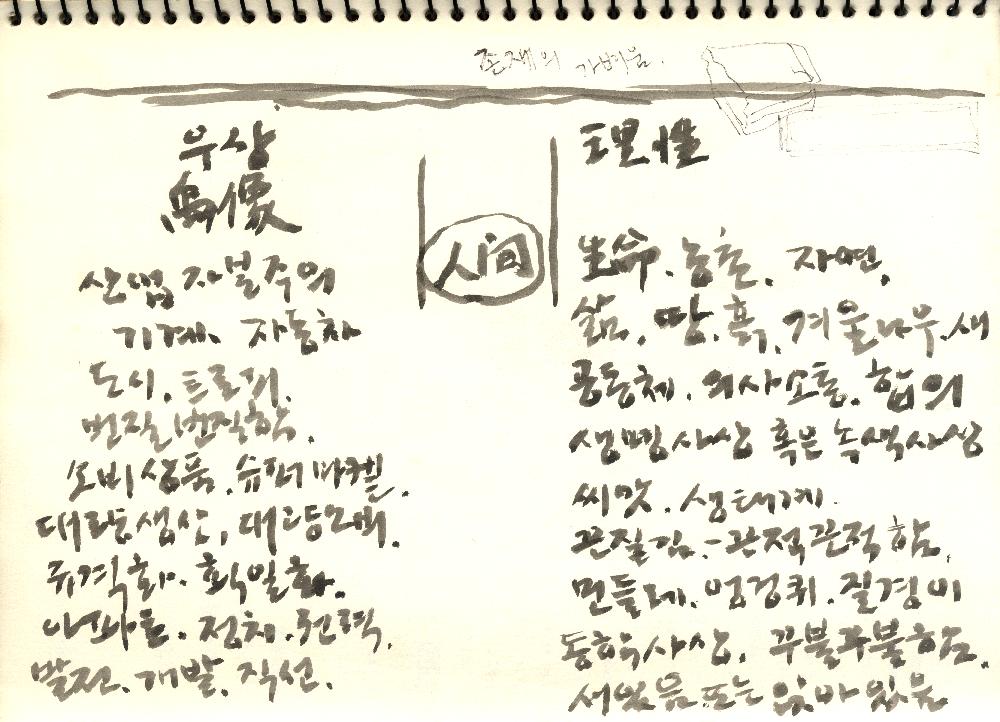 존재의 가벼움.
우상
偶像
산업자본주의
기계. 자동차
도시. 트로피.
번질번질함.
소비상품. 슈퍼마켙.
대량생산, 대량소비.
규격화. 획일화.
아파트. 정치. 권력.
발전. 개발. 직선.
人间
理性
生命. 농촌. 자연,
삶. 땅. 흙. 겨울나무. 새
공동체. 의사소통. 합의
생명사상 혹은 녹색사상
씨앗. 생태계.
끈질김. - 끈적끈적함.
민들레. 엉겅퀴. 질경이
동학사상. 꾸불꾸불함.
서있음 또는 앉아있음